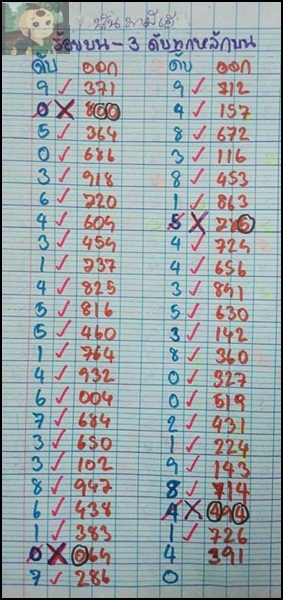 ร้อยบน - 3 ดับทุกหลักบน
ดับ ออก ดับ ออก
9 ✓ 371 9 ✓ 712
0 X 800 4 ✓ 157
5 ✓ 364 8 ✓ 672
0 ✓ 686 3 ✓ 116
3 ✓ 918 8 ✓ 453
6 ✓ 720 1 ✓ 863
4 ✓ 609 5 X
3 ✓ 454 4 ✓ 724
1 ✓ 237 4 ✓ 656
4 ✓ 825 3 ✓ 891
5 ✓ 816 5 ✓ 630
5 ✓ 460 3 ✓ 142
1 ✓ 764 8 ✓ 360
4 ✓ 932 0 ✓ 327
6 ✓ 004 0 ✓ 519
7 ✓ 684 2 ✓ 931
3 ✓ 650 1 ✓ 224
3 ✓ 102 9 ✓ 143
8 ✓ 947 8 ✓ 714
6 ✓ 438 4 X 494
1 ✓ 383 1 ✓ 726
0 X 064 4 391
7 ✓ 286 0